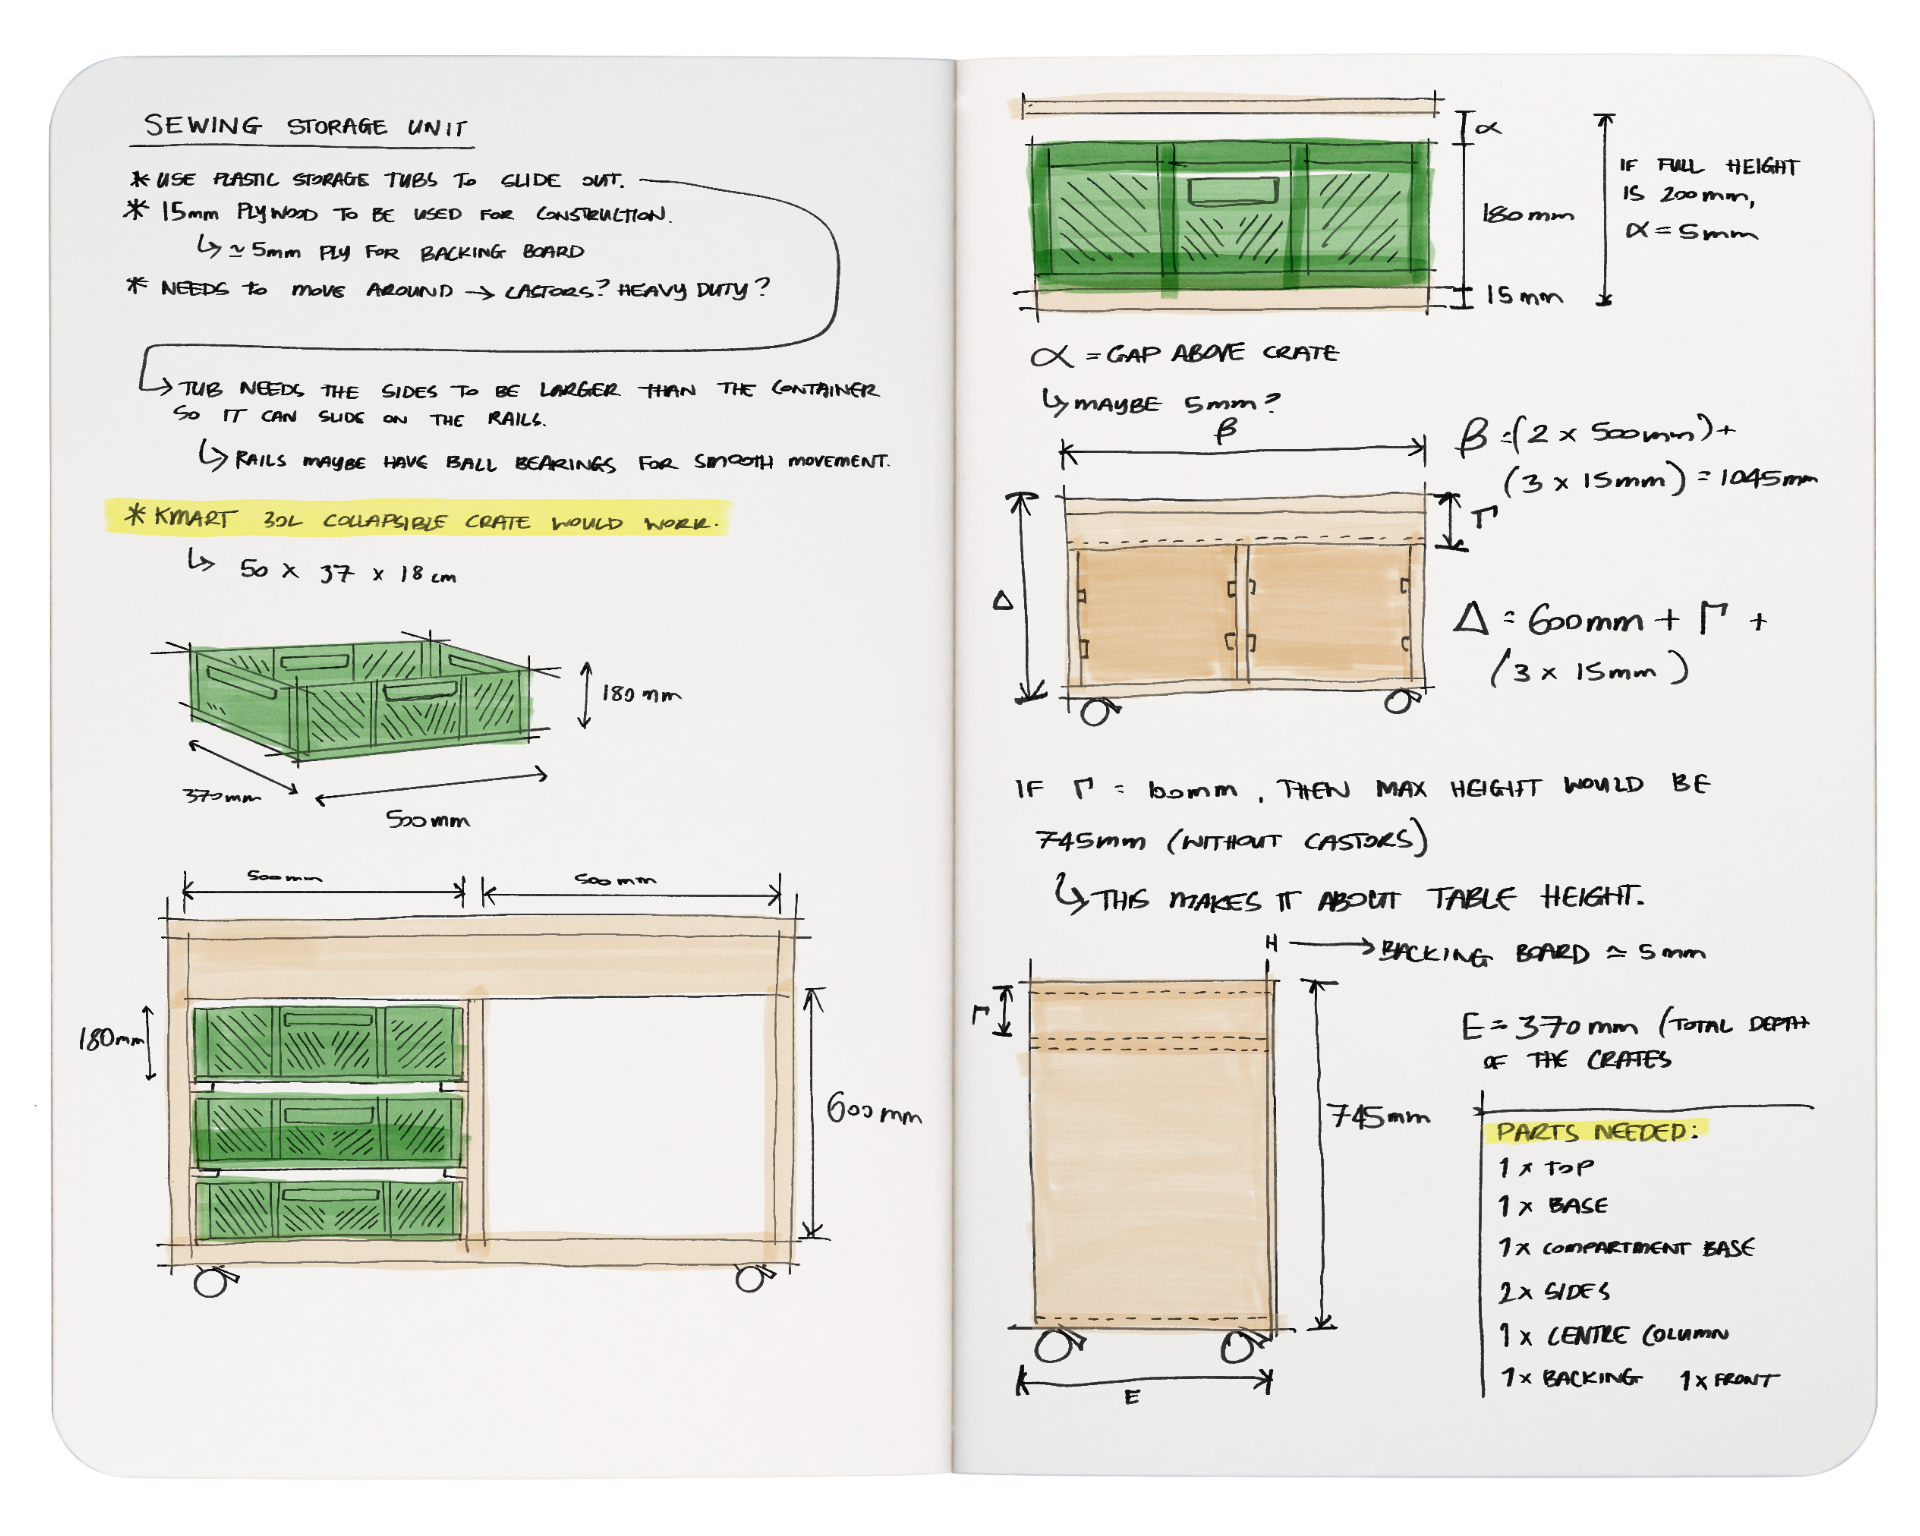 SEWING STORAGE UNIT
* USE PLASTIC STORAGE TUBS TO SLIDE OUT.
* 15mm PLYWOOD TO BE USED FOR CONSTRUCTION.
↳ ≃ 5mm PLY FOR BACKING BOARD
* NEEDS TO MOVE AROUND → CASTORS? HEAVY DUTY?
TUB NEEDS THE SIDES TO BE LARGER THAN THE CONTAINER
SO IT CAN SLIDE ON THE RAILS.
↳ RAILS MAYBE HAVE BALL BEARINGS FOR SMOOTH MOVEMENT.
* KMART 30L COLLAPSIBLE CRATE WOULD WORK.
↳ 50 x 37 x 18 cm
180 mm
370mm
500mm
500mm
500mm
180mm
600mm
α
180mm
15mm
IF FULL HEIGHT
IS 200mm,
α = 5mm
α = GAP ABOVE CRATE
↳ MAYBE 5mm?
β
Γ
Δ
β = (2 x 500mm) +
(3 x 15mm) = 1045mm
Δ = 600mm + Γ +
(3 x 15mm)
IF Γ = 100mm, THEN MAX HEIGHT WOULD BE
745mm (WITHOUT CASTORS)
↳ THIS MAKES IT ABOUT TABLE HEIGHT.
H → BACKING BOARD ≃ 5mm
Γ
745mm
E
E = 370mm (TOTAL DEPTH
OF THE CRATES
PARTS NEEDED:
1 x TOP
1 x BASE
1 x COMPARTMENT BASE
2 x SIDES
1 x CENTRE COLUMN
1 x BACKING 1 x FRONT